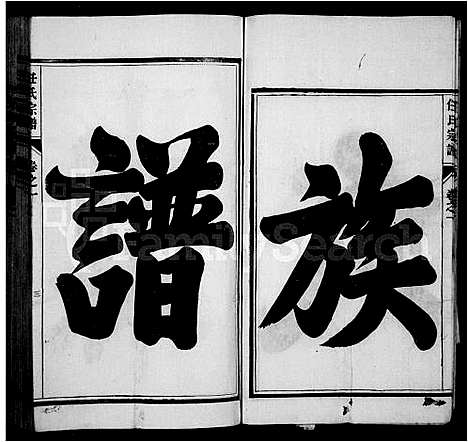 族
譜
任氏宗譜
卷之一
任氏宗譜
卷之一
FamilySearch